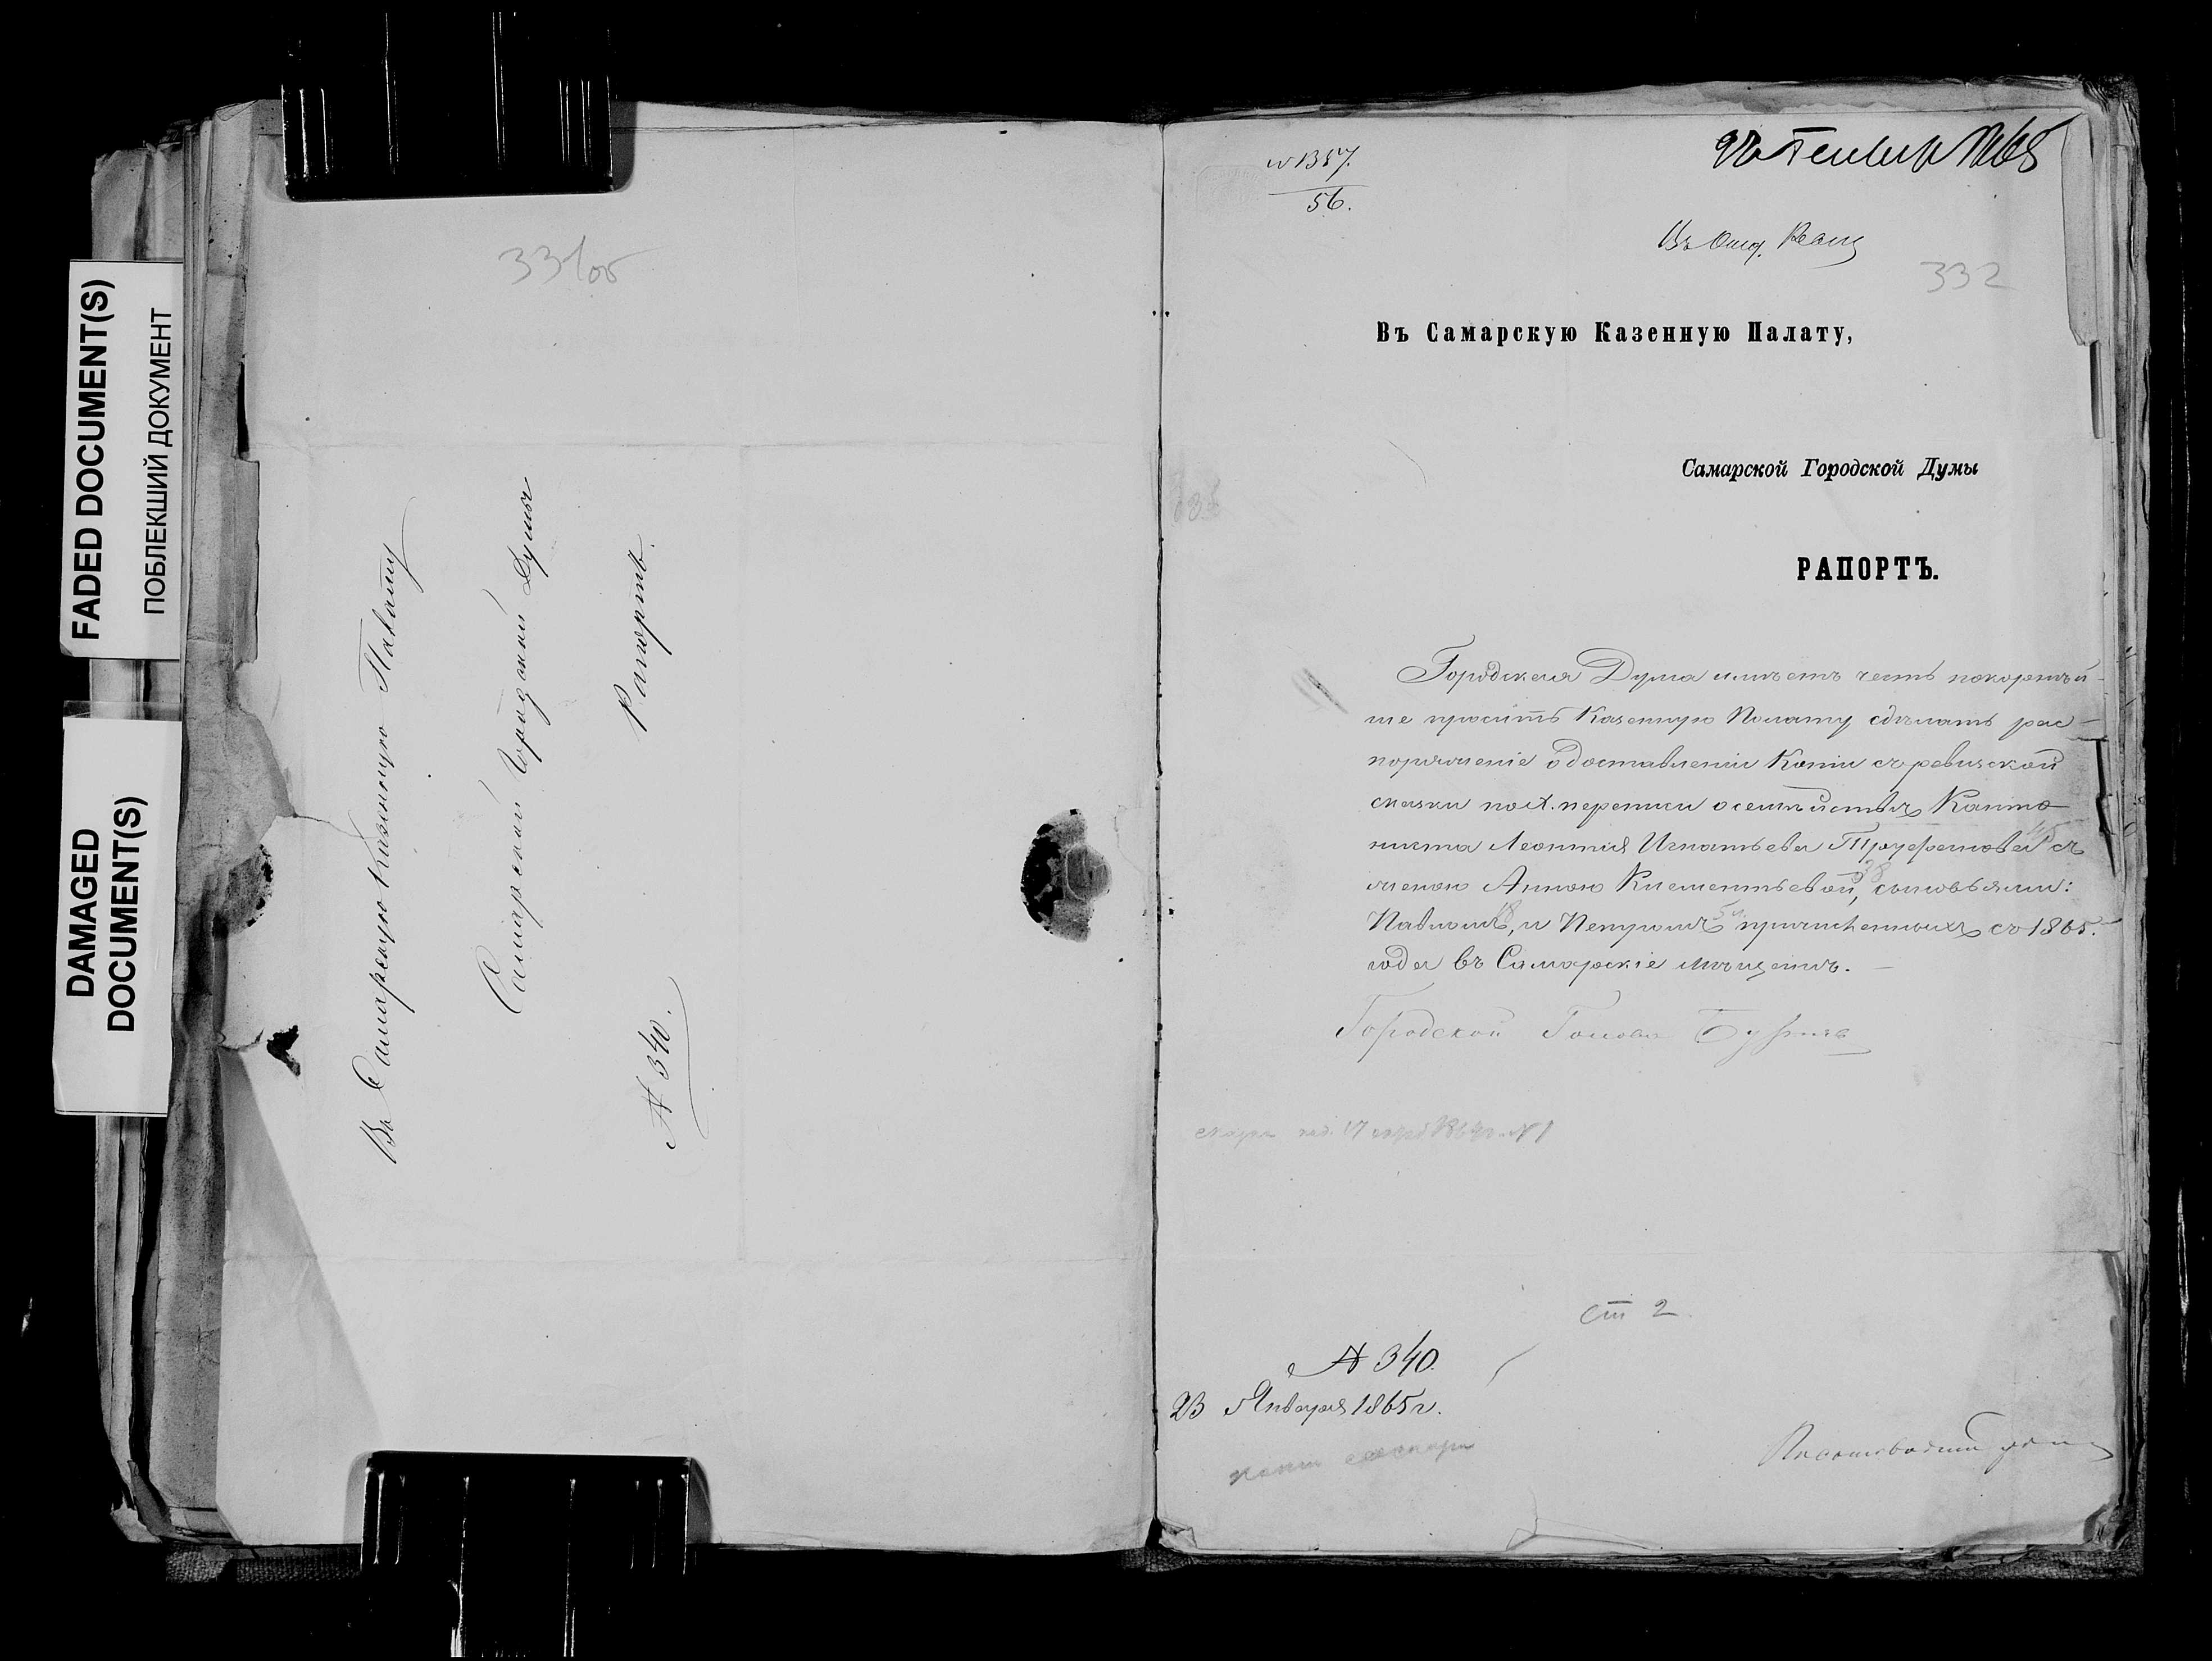 FADED DOCUMENT(S)
ПОБЛЕКШИЙ ДОКУМЕНТ
DAMAGED
DOCUMENT(S)
331об
Въ Самарскую Казенную Палату
Самарской Городской Думы
Рапортъ.
№ 340.
№ 1357.
56.
Въ
332
Въ Самарскую Казенную Палату,
Самарской Городской Думы
РАПОРТЪ.
Городская Дума имѣетъ честь покорнѣй-
ше проситъ Казенную Палату сдѣлать рас-
поряженіе о доставленіи Копіи съ ревизской
сказки по X. переписи о семѣйствѣ Канто-
ниста Леонтія Игнатьева съ
женою Анною Климентьевой, сыновьями:
Павломъ, и Петромъ причисленныхъ съ 1865.
года въ Самарскіе мѣщане.
Городской Голова
№ 1
ст 2
№ 340.
23 Января 1865 г.